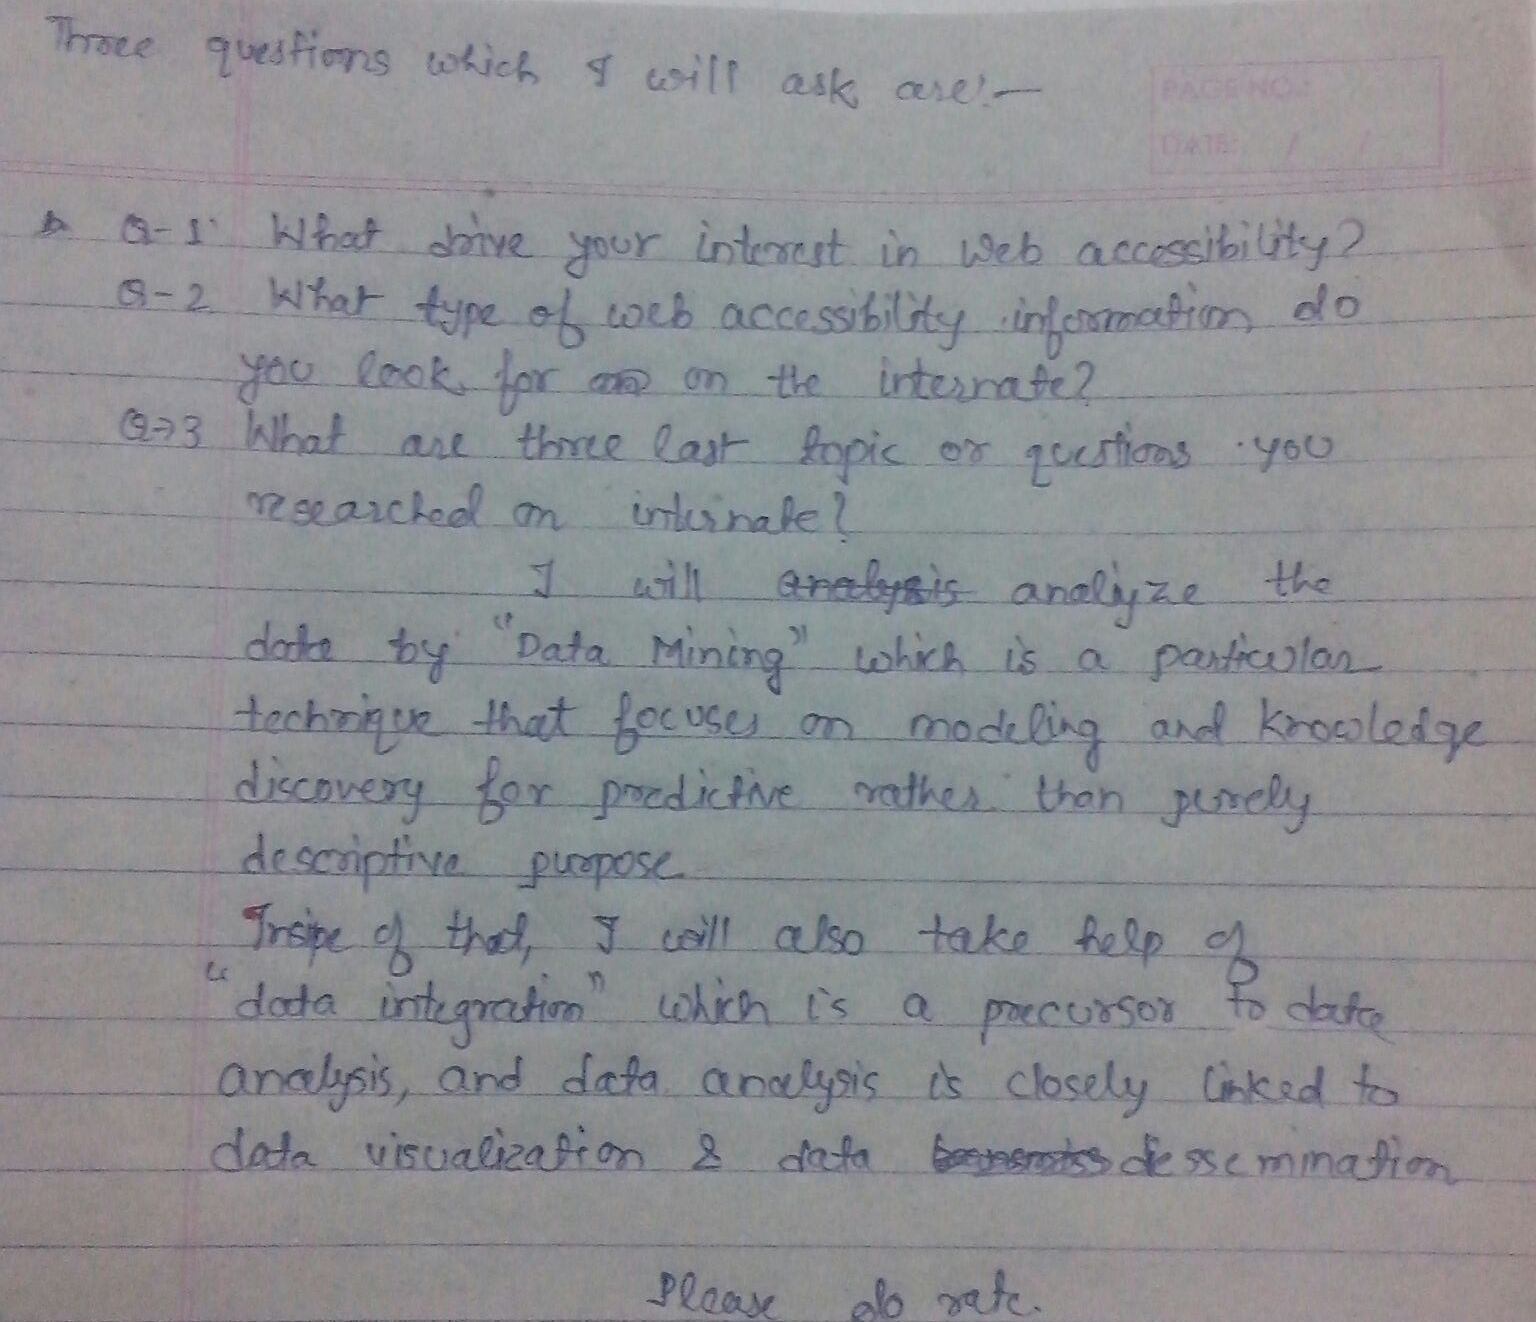 Three questions which I will ask are:—
PAGE NO.:
DATE: / /
Q-1 What drive your interest in web accessibility?
Q-2 What type of web accessibility information do
you look for on the internate?
Q→3 What are three last topic or questions you
researched on internate?
I will analysis analyze the
data by "Data Mining" which is a particular
technique that focuses on modeling and knowledge
discovery for predictive rather than purely
descriptive purpose
Inspite of that, I will also take help of
"data integration" which is a precursor to data
analysis, and data analysis is closely linked to
data visualization & data dessemination
Please do rate.